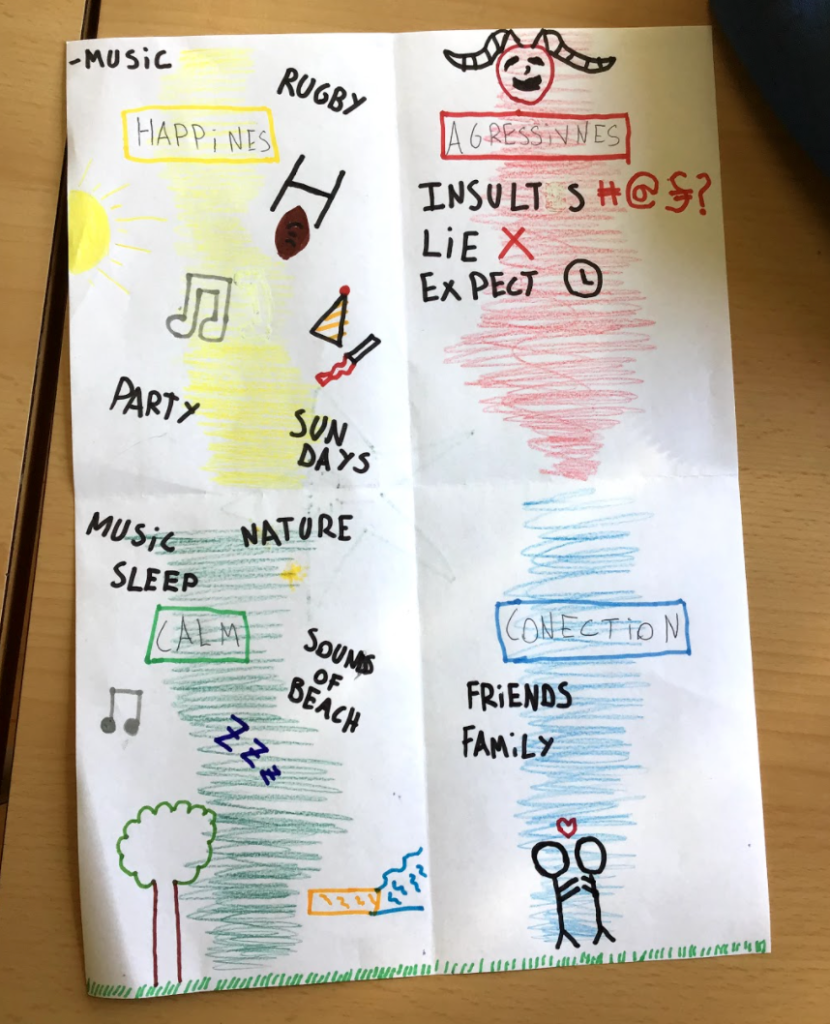 -MUSiC
RUGBY
HAPPiNES
PARTY
SUN
DAYS
AGRESSiVNES
INSULT S #@§?
LiE X
EXPECT
MUSiC
NATURE
SLEEP
CALM
SOUNDS
OF
BEACH
ZZZ
CONECTiON
FRiENDS
FAMiLY